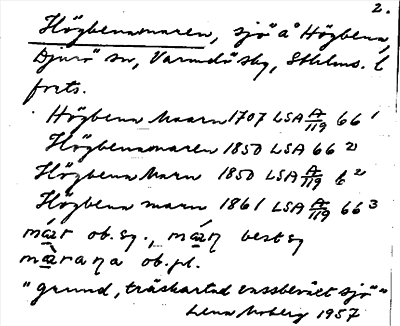 2.
Högbenamaren, sjö å Högbena,
Djurö sn, Värmdö skg, Sthlms. l
forts.
Högbena Maarn 1707 LSA A/119 66 1
Högbenamaren 1850 LSA 66 2
Högbena Marn 1850 LSA A/119 6 2
Högbena marn 1861 LSA A/119 66 3
ob. sg., best sg
ob. pl.
"grund, träskartad vassbevuxt sjö"
Lena Moberg 1957